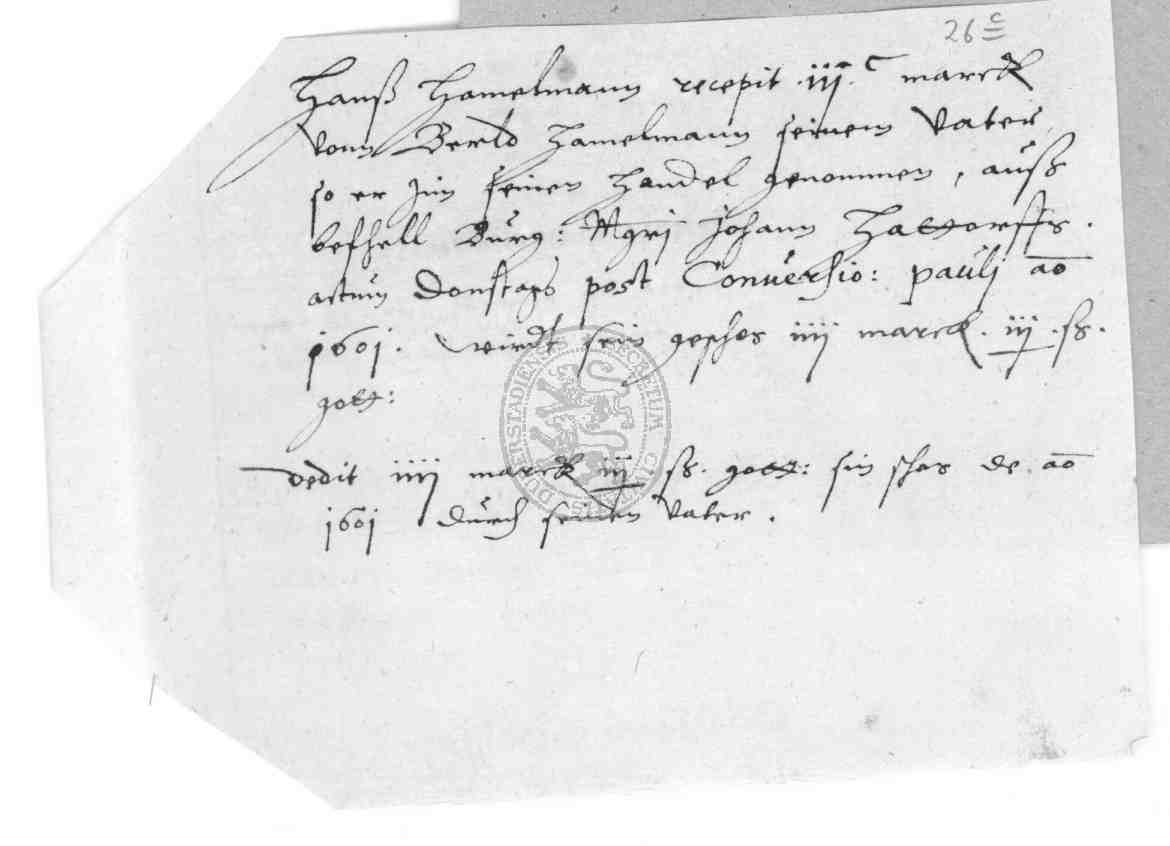 26 c
Hanß Hamelmann recepit .iij.c marck
vonn Berld Hamelmann seinem Vater,
so er jnn seinen Handel genommen, auß
befhell Burg: Mgri Johann Hattorffs.
actum Donstags post Conuersio: paulj ao
1601. wirdt sein geschos iiij marck. iij .ß.
gott:
dedit iiij marck iij ß. gott: sin schos de ao
1601 durch seinen Vater.
DUDERSTADIENSIS SECRETUM